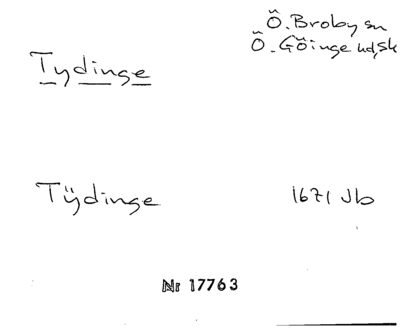 Ö. Broby sn
Ö. Göinge hd, Sk
Tydinge
Tÿdinge 1671 Jb
Nr 17763